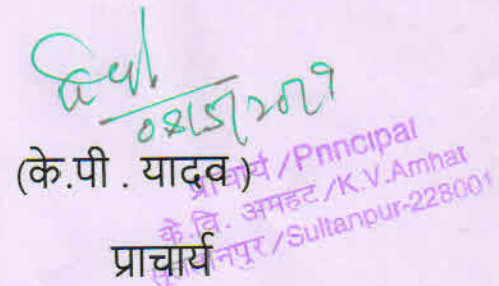 08/5/2019
(के.पी . यादव)
प्राचार्य / Principal
के.वि. अमहट / K.V.Amhat
सुलतानपुर / Sultanpur-228001
प्राचार्य